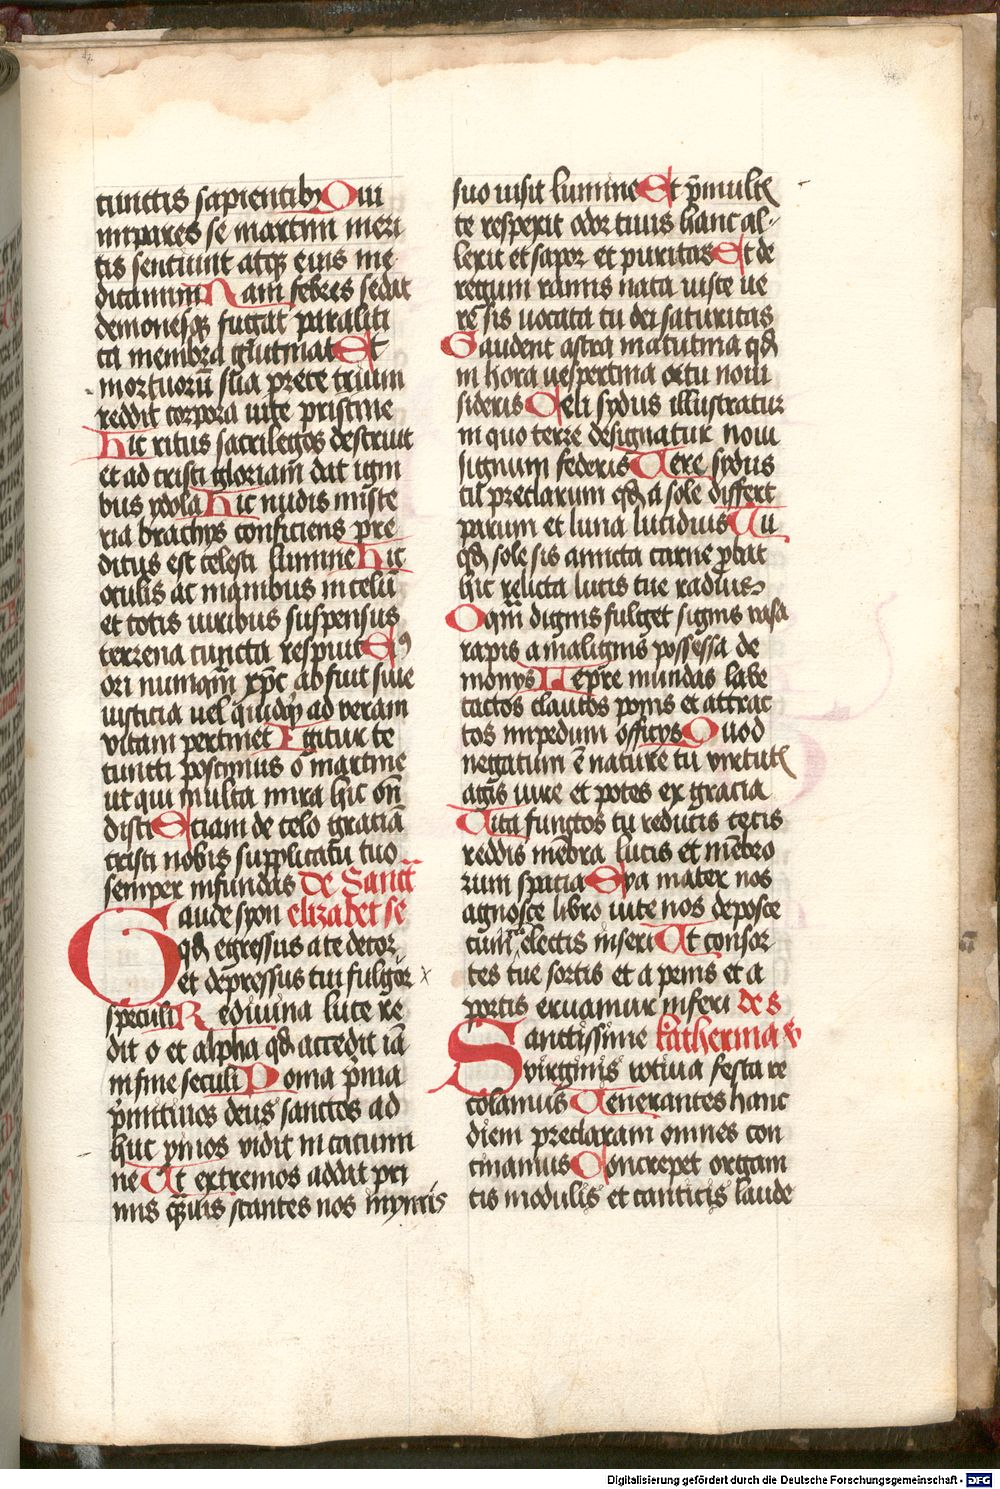 cunctis sapientibꝫ Qui
impares se martini meri
tis sentiunt atqꝫ eius me
dicamini Nam febres sedat
demonesqꝫ fugat paraliti
ca membra glutinat Et
mortuorū sua prece trium
reddit corpora vite pristine
Hic ritus sacrilegos destruit
et ad cristi gloriam̄ dat igni
bus ydola Hic nudis miste
ria brachys conficiens pre
ditus est celesti lumine Hic
oculis ac manibus in celū
et totis viribus suspensus
terrena cuncta respuit Eiꝰ
ori numqm̄ xp̄c abfuit siue
iusticia vel quidqꝫ ad veram
vitam pertinet Igitur te
cuncti poscimus o martine
ut qui multa mira hic on̄
disti Etiam de celo graciā
cristi nobis supplicatu tuo
semper infundas De Sanct
Gaude syon elizabet se
qd̄ egressus a te decor
et depressus tui fulgor
speculi Rediuiua luce re
dit o et alpha qd̄ accedit iā
in fine seculi Poma p̄ma
p̄mitiuos deus sanctos ad
huc p̄mos vidit in cacumi
ne Ut extremos addat pri
mis qm̄uis stantes nos in ymis
suo uisit lumine Et p̄mulꝭ
te respexit odor cuius hanc al
lexit et sapor et puritas Et de
regum ramis nata iuste ve
re sis uocata tu dei saturitas
Gaudent astra matutina qd̄
in hora vespertina ortu noui
sideris Celi sydus illustratur
in quo terre designatur noui
signum federis Vere sydus
tu preclarum qd̄ a sole differt
parum et luna lucidius Tu
qd̄ sole sis amicta carne ꝓbat
hic relicta lucis tue radius
O qm̄ dignis fulget signis vasa
rapis a malignis possessa de
monys Lepre mundas labe
tactos claudos ponis et attrac
tos impedum officys Quod
negatum ē nature tu virtutꝭ
agis iure et potes ex gracia
Vita functos tu reducis cecis
reddis mēbra lucis et mēbro
rum spacia Eya mater nos
agnosce libro vite nos deposce
cum electis inseri Ut consor
tes tue sortis et a penis et a
portis eruamur inferi de s
Sanctissime katherina v
virginis votiua festa re
colamus Venerantes hanc
diem preclaram omnes con
cinamus Concrepet organi
cis modulis et canticis laude
Digitalisierung gefördert durch die Deutsche Forschungsgemeinschaft - DFG